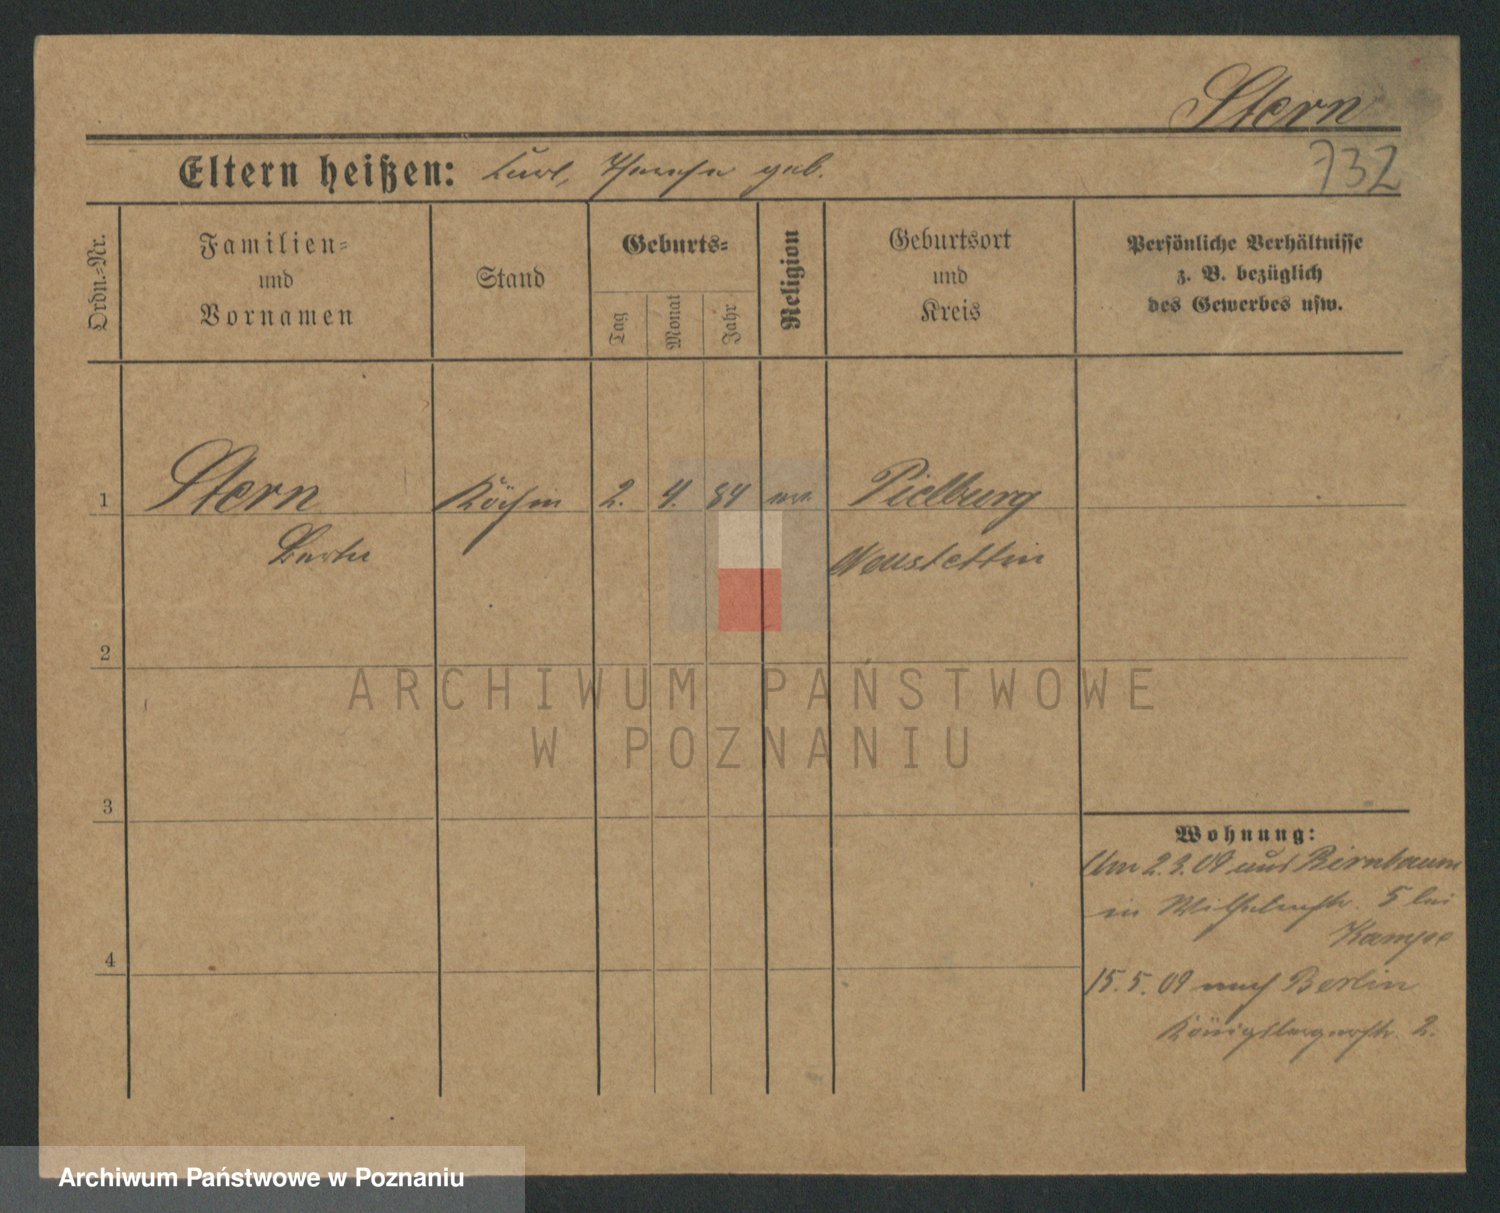 Stern
732
Eltern heißen: Karl, Therese geb.
Ordn.-Nr.
Familien-
und
Vornamen
Stand
Geburts-
Tag
Monat
Jahr
Religion
Geburtsort
und
Kreis
Persönliche Verhältnisse
z. B. bezüglich
des Gewerbes usw.
1 Stern Köchin 2. 4. 84 Pielburg
Berta Neustettin
2
3
4
Wohnung:
Am 2.3.09 aus Birnbaum
in Wilhelmstr. 5 bei
Kampe
15.5.09 nach Berlin
Königsbergerstr. 2.
ARCHIWUM PAŃSTWOWE
W POZNANIU
Archiwum Państwowe w Poznaniu